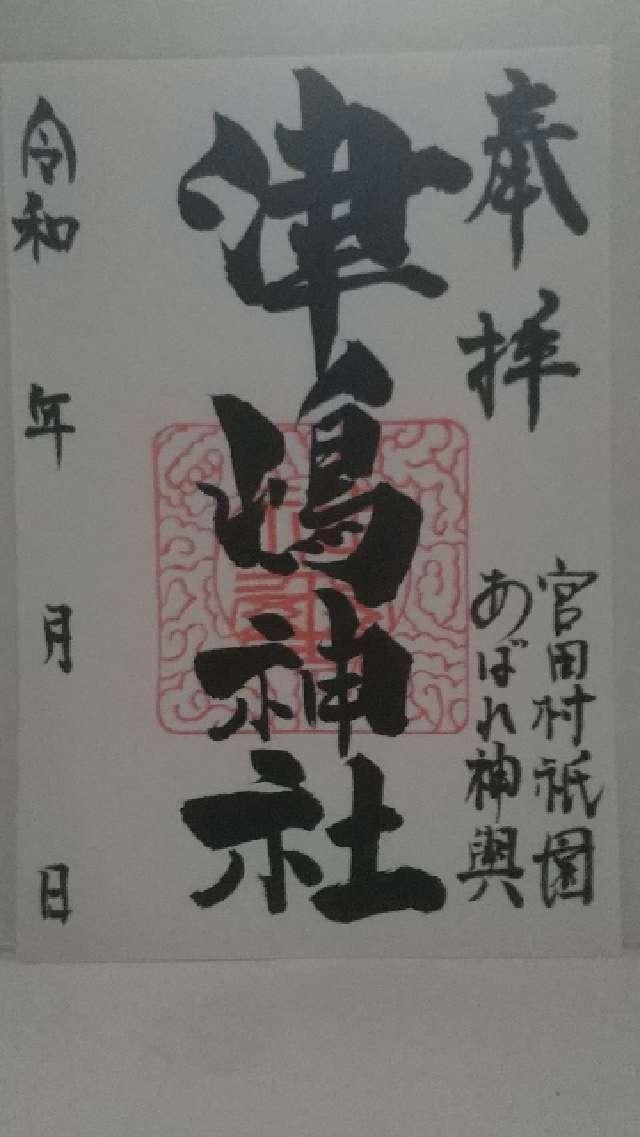 奉拝
宮田村祇園
あばれ神輿
津嶋神社
令和 年 月 日